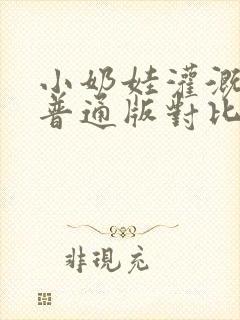 小奶娃灌溉
普通版對比
非現充